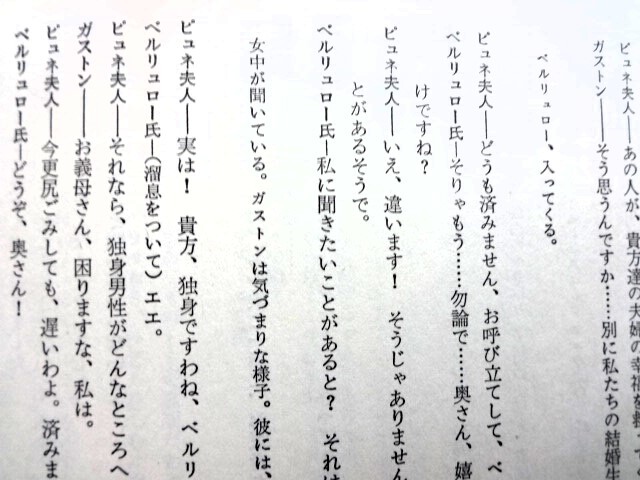 ピュネ夫人――あの人が、貴方達の夫婦の幸福を救って
ガストン――そう思うんですか……別に私たちの結婚生
ベルリュロー、入ってくる。
ピュネ夫人――どうも済みません、お呼び立てして、ベ
ベルリュロー氏―そりゃもう……勿論で……奥さん、嬉
けですね？
ピュネ夫人――いえ、違います！　そうじゃありません
とがあるそうで。
ベルリュロー氏―私に聞きたいことがあると？　それは
女中が聞いている。ガストンは気づまりな様子。彼には、
ピュネ夫人――実は！　貴方、独身ですわね、ベルリ
ベルリュロー氏―（溜息をついて）エエ。
ピュネ夫人――それなら、独身男性がどんなところへ
ガストン――お義母さん、困りますな、私は。
ピュネ夫人――今更尻ごみしても、遅いわよ。済みま
ベルリュロー氏―どうぞ、奥さん！